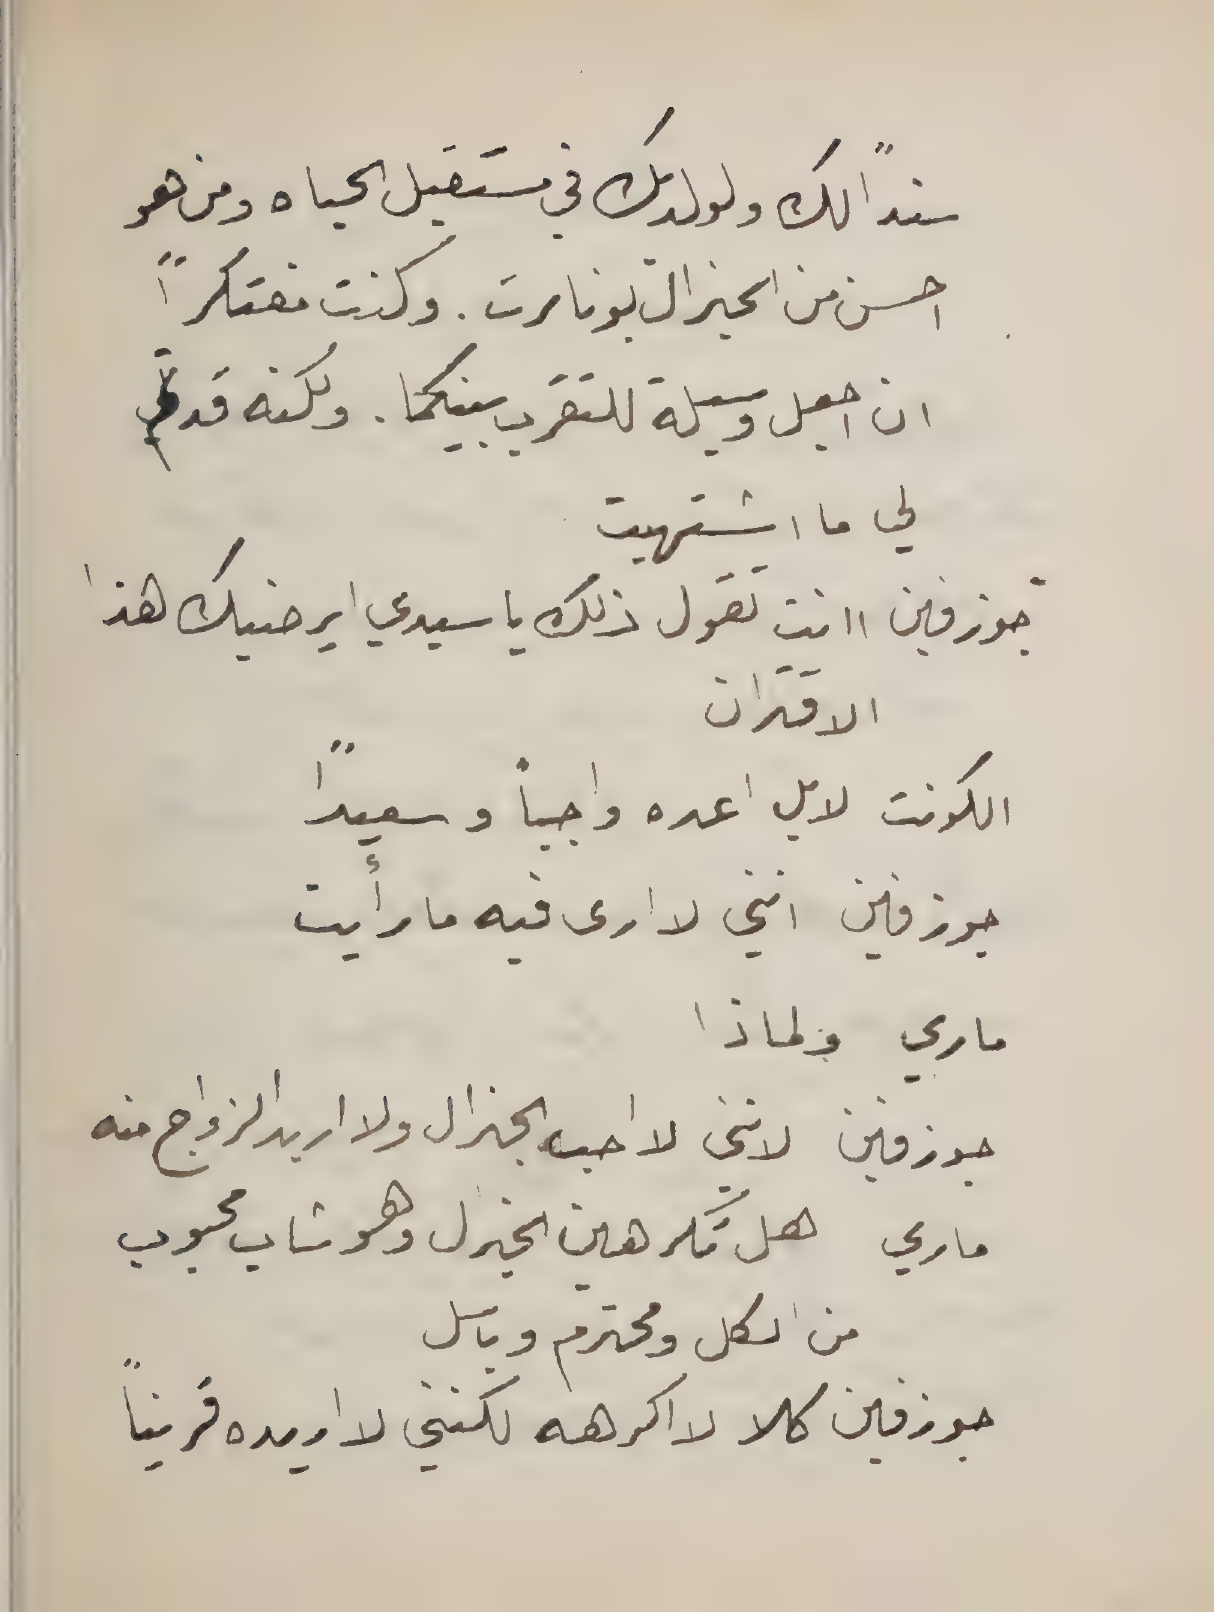 سنداً لك ولولديك في مستقبل الحياه ومن هو
احسن من الجنرال بونابرت . وكنت مفتكراً
ان اجعل وسيلة للتقرب بينكما . ولكنه قد تم
لي ما اشتهيت
جوزفين اانت تقول ذلك يا سيدي ايرضيك هذا
الاقتران
الكونت لا بل اعده واجباً و سعيداً
جوزفين انني لا ارى فيه ما رأيت
ماري ولماذا
جوزفين لانني لا احب الجنرال ولا اريد الزواج منه
ماري هل تكرهين الجنرل وهو شاب محبوب
من الكل ومحترم وباسل
جوزفين كلا لا اكرهه لكنني لا اريده قريناً